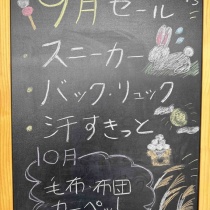 9月セール
・スニーカー
・バック・リュック
・汗すきっと
10月
毛布・布団
カーペット